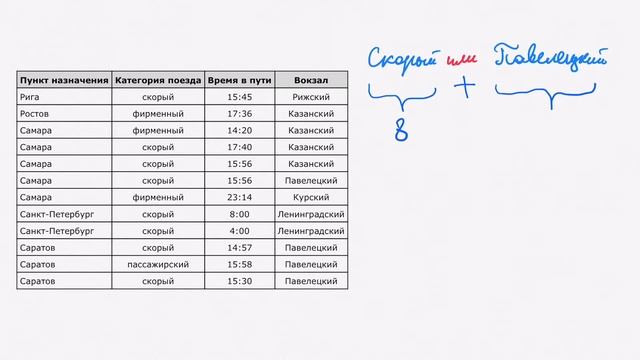 Скорый или Павелецкий
+
8
Пункт назначения Категория поезда Время в пути Вокзал
Рига скорый 15:45 Рижский
Ростов фирменный 17:36 Казанский
Самара фирменный 14:20 Казанский
Самара скорый 17:40 Казанский
Самара скорый 15:56 Казанский
Самара скорый 15:56 Павелецкий
Самара фирменный 23:14 Курский
Санкт-Петербург скорый 8:00 Ленинградский
Санкт-Петербург скорый 4:00 Ленинградский
Саратов скорый 14:57 Павелецкий
Саратов пассажирский 15:58 Павелецкий
Саратов скорый 15:30 Павелецкий